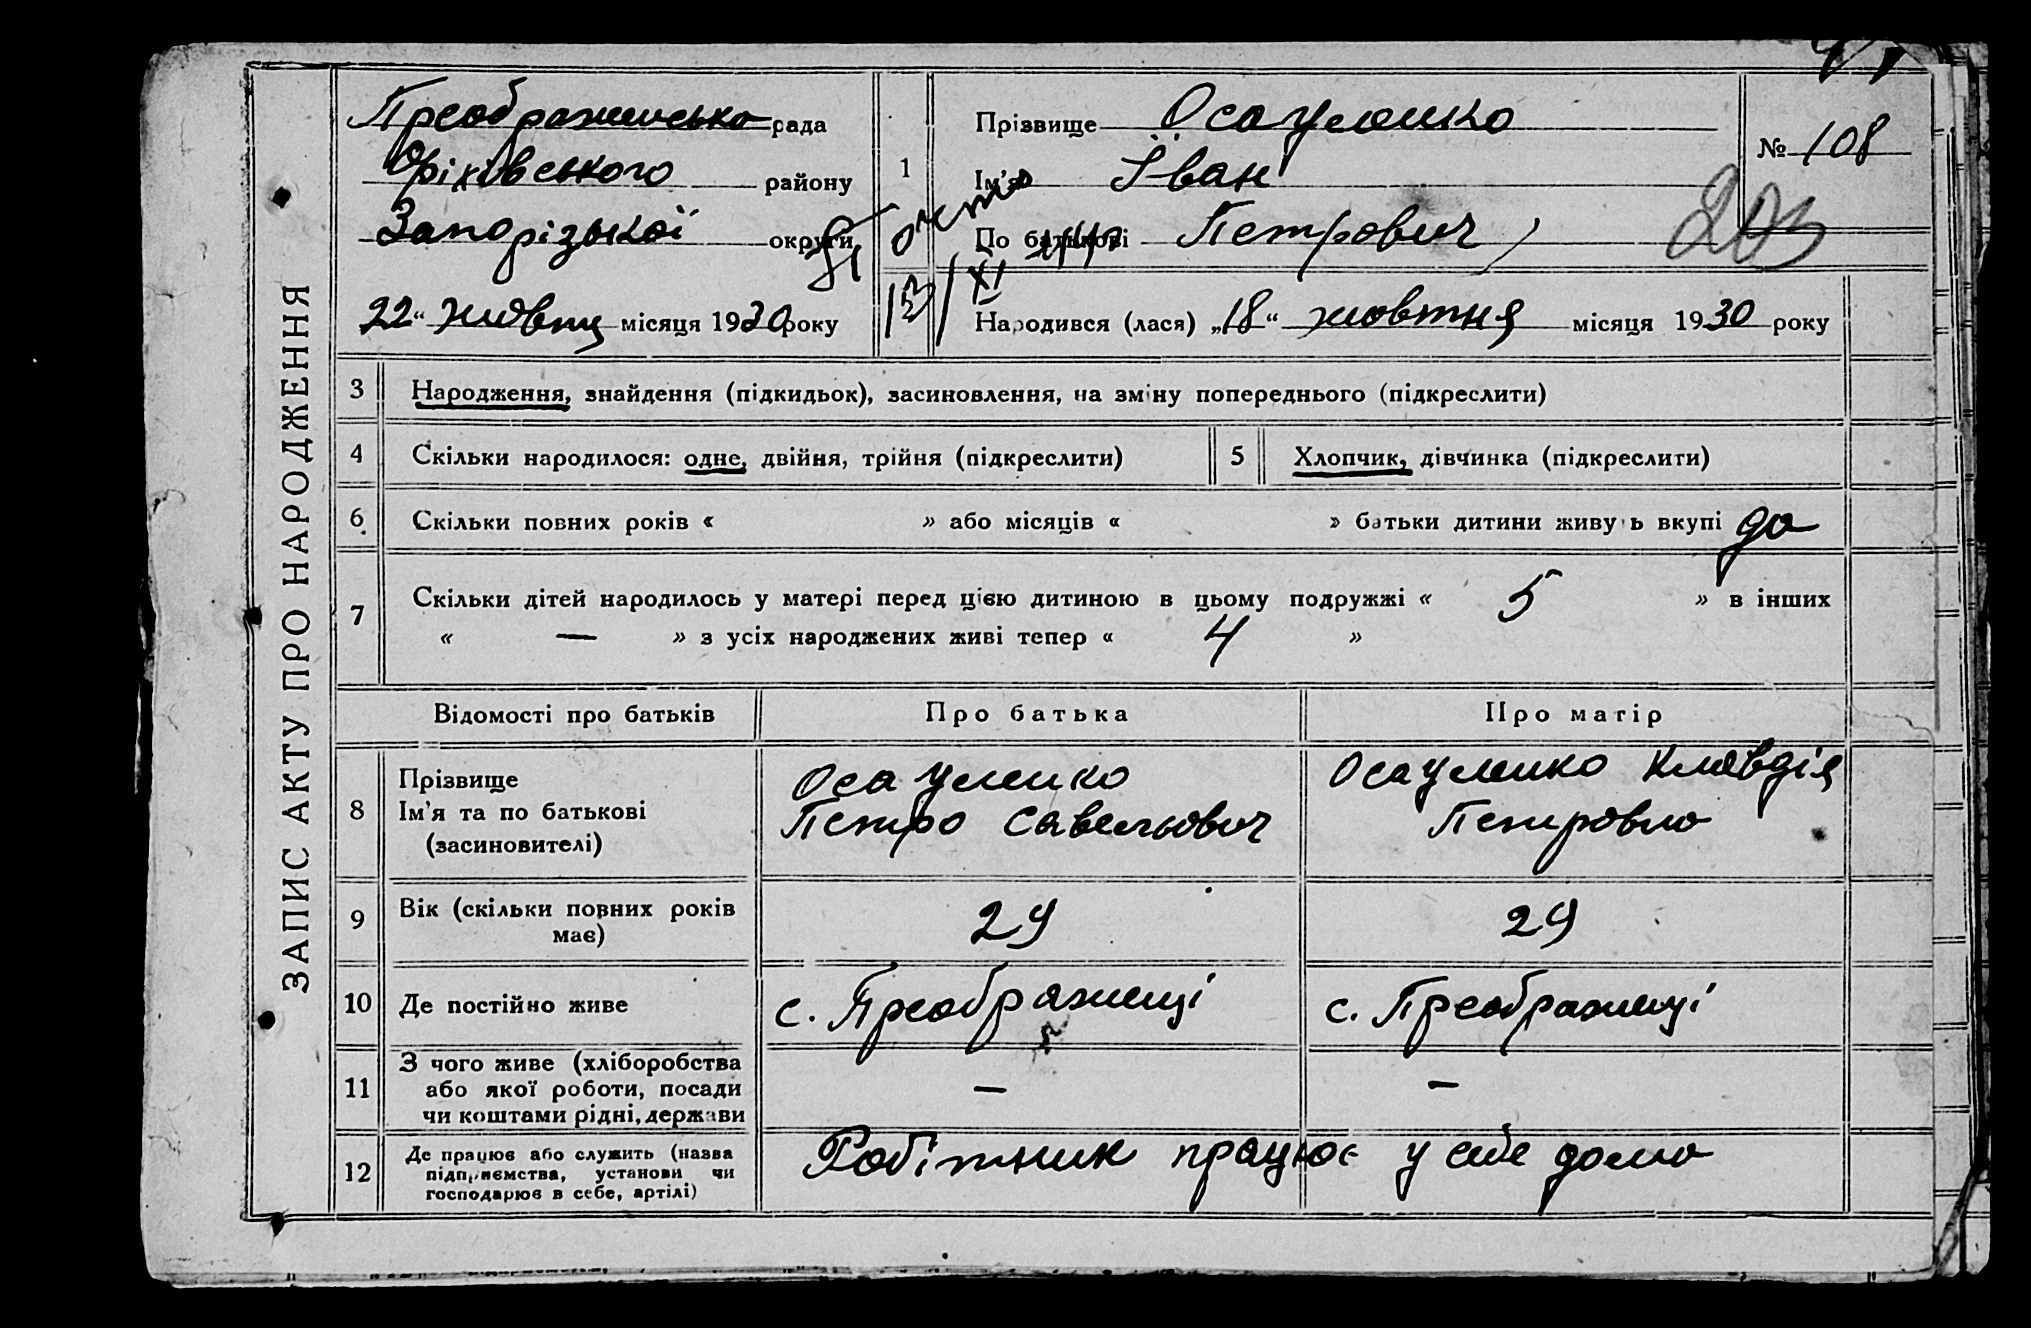 ЗАПИС АКТУ ПРО НАРОДЖЕННЯ
Преображенсько рада
Оріхівського району
Запорізької округи
22 “ жовтня місяця 1930 року
1
Прізвище Осауленко
Ім’я Іван
По батькові Петрович
№ 108
203
XI
Народився (лася) „18“ жовтня місяця 1930 року
3 Народження, знайдення (підкидьок), засиновлення, на зміну попереднього (підкреслити)
4 Скільки народилося: одне, двійня, трійня (підкреслити)
5 Хлопчик, дівчинка (підкреслити)
6 Скільки повних років « » або місяців « » батьки дитини живуть вкупі да
7 Скільки дітей народилось у матері перед цією дитиною в цьому подружжі « 5 » в інших
« — » з усіх народжених живі тепер « 4 »
Відомості про батьків Про батька Про матір
8 Прізвище
Ім’я та по батькові
(засиновителі)
Осауленко
Петро Савельович
Осауленко Клавдія
Петровна
9 Вік (скільки повних років
має)
29 29
10 Де постійно живе с. Преображенці с. Преображенці
11 З чого живе (хліборобства
або якої роботи, посади
чи коштами рідні, держави
— —
12 Де працює або служить (назва
підприємства, установи чи
господарює в себе, артілі)
Робітник працює у себе дома